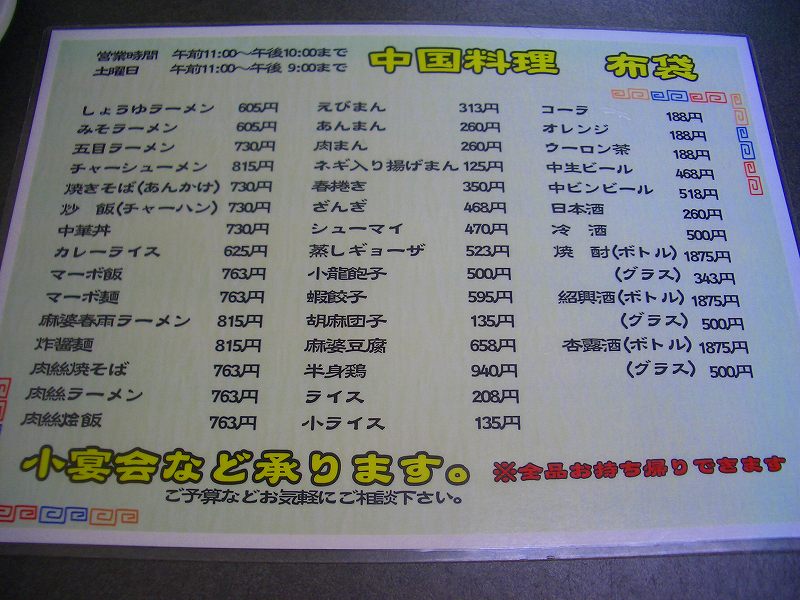 営業時間 午前11:00～午後10:00まで
土曜日 午前11:00～午後 9:00まで
中国料理 布袋
しょうゆラーメン 605円
みそラーメン 605円
五目ラーメン 730円
チャーシューメン 815円
焼きそば(あんかけ) 730円
炒 飯(チャーハン) 730円
中華丼 730円
カレーライス 625円
マーボ飯 763円
マーボ麺 763円
麻婆春雨ラーメン 815円
炸醤麺 815円
肉絲焼そば 763円
肉絲ラーメン 763円
肉絲烩飯 763円
えびまん 313円
あんまん 260円
肉まん 260円
ネギ入り揚げまん 125円
春捲き 350円
ざんぎ 468円
シューマイ 470円
蒸しギョーザ 523円
小龍飽子 500円
蝦餃子 595円
胡麻団子 135円
麻婆豆腐 658円
半身鶏 940円
ライス 208円
小ライス 135円
コーラ 188円
オレンジ 188円
ウーロン茶 188円
中生ビール 468円
中ビンビール 518円
日本酒 260円
冷 酒 500円
焼 酎(ボトル) 1875円
(グラス) 343円
紹興酒(ボトル) 1875円
(グラス) 500円
杏露酒(ボトル) 1875円
(グラス) 500円
小宴会など承ります。
※全品お持ち帰りできます
ご予算などお気軽にご相談下さい。